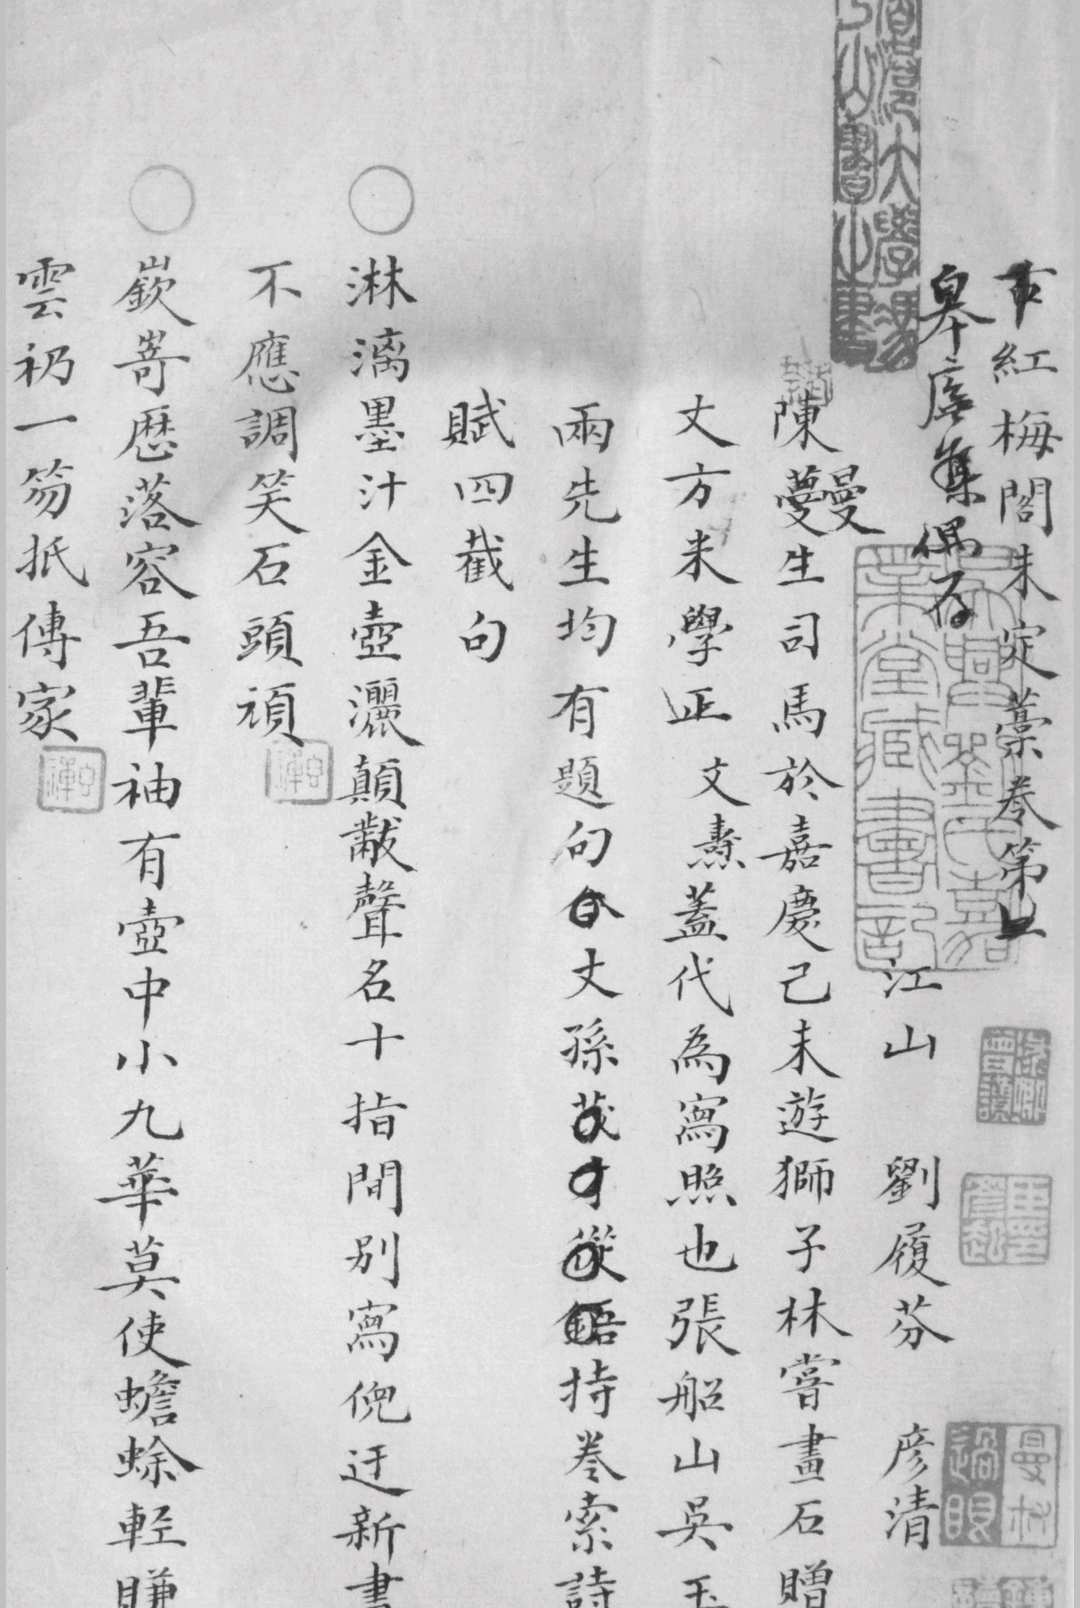 古紅梅閣未定藁卷第上
皋廡集偶存
江山 劉履芬 彥清
陳曼生司馬於嘉慶己未遊獅子林嘗畫石贈
丈方米學正文燾蓋代為寫照也張船山吳玉
兩先生均有題句今丈孫茂才從鋙持卷索詩
賦四截句
淋漓墨汁金壺灑顛黻聲名十指間別寫倪迂新書
不應調笑石頭頑
嶔嵜歷落容吾輩袖有壺中小九華莫使蟾蜍輕賺
雲礽一笏抵傳家